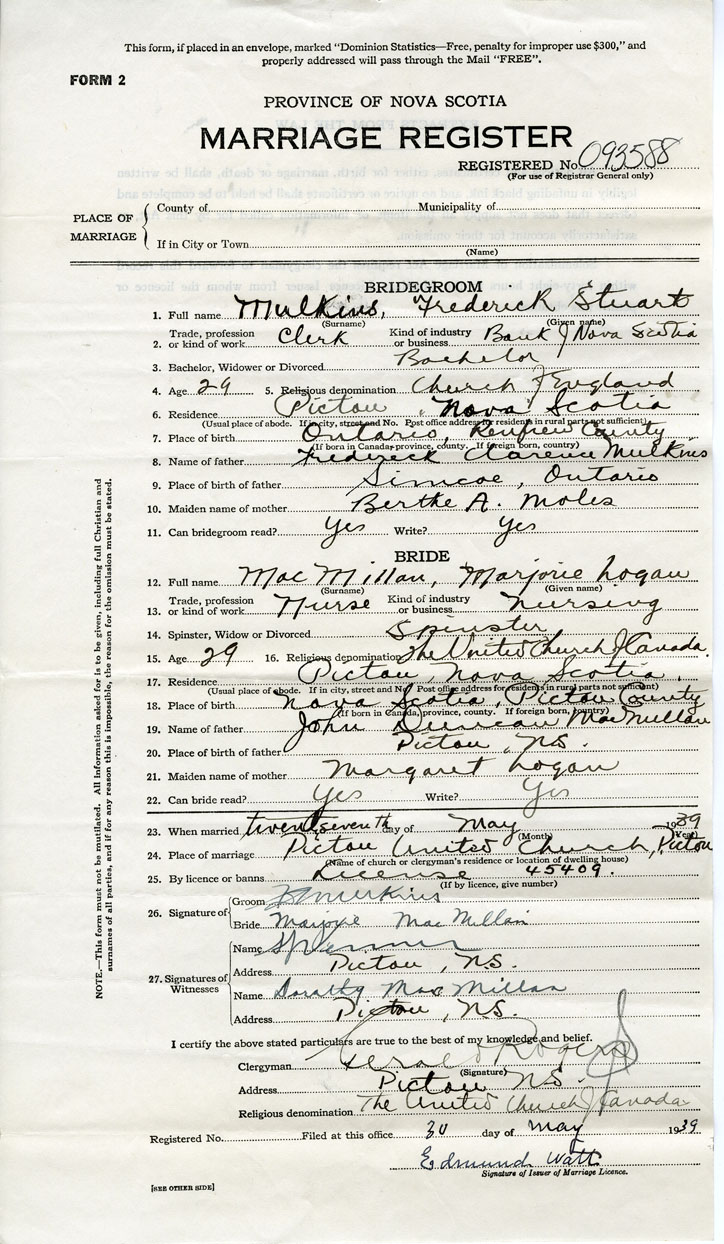 This form, if placed in an envelope, marked "Dominion Statistics—Free, penalty for improper use $300," and
properly addressed will pass through the Mail "FREE".
FORM 2
PROVINCE OF NOVA SCOTIA
MARRIAGE REGISTER
REGISTERED No. 093588
(For use of Registrar General only)
PLACE OF MARRIAGE
County of Municipality of
If in City or Town
(Name)
BRIDEGROOM
1. Full name Mulkins, Frederick Stuart
(Surname) (Given name)
2. Trade, profession or kind of work Clerk Kind of industry or business Bank of Nova Scotia
3. Bachelor, Widower or Divorced Bachelor
4. Age 29 5. Religious denomination Church of England
6. Residence Pictou, Nova Scotia
(Usual place of abode. If in city, street and No. Post office address for residents in rural parts not sufficient)
7. Place of birth Ontario, Renfrew County
(If born in Canada, province, county. If foreign born, country)
8. Name of father Frederick Clarence Mulkins
9. Place of birth of father Simcoe, Ontario
10. Maiden name of mother Berthe A. Moles
11. Can bridegroom read? Yes Write? Yes
BRIDE
12. Full name MacMillan, Marjorie Logan
(Surname) (Given name)
13. Trade, profession or kind of work Nurse Kind of industry or business Nursing
14. Spinster, Widow or Divorced Spinster
15. Age 29 16. Religious denomination The United Church of Canada.
17. Residence Pictou, Nova Scotia.
(Usual place of abode. If in city, street and No. Post office address for residents in rural parts not sufficient)
18. Place of birth Nova Scotia, Pictou County
(If born in Canada, province, county. If foreign born, country)
19. Name of father John Duncan MacMillan
20. Place of birth of father Pictou, N.S.
21. Maiden name of mother Margaret Logan
22. Can bride read? Yes Write? Yes
23. When married twenty seventh day of May 1939
(Month) (Year)
24. Place of marriage Pictou United Church, Pictou
(Name of church or clergyman's residence or location of dwelling house)
25. By licence or banns License 45409.
(If by licence, give number)
26. Signature of
Groom Mulkins
Bride Marjorie MacMillan
27. Signatures of Witnesses
Name
Address Pictou, N.S.
Name Dorothy MacMillan
Address Pictou, N.S.
I certify the above stated particulars are true to the best of my knowledge and belief.
Clergyman Gerald Rogers
(Signature)
Address Pictou N.S.
Religious denomination The United Church of Canada
Registered No. Filed at this office 30 day of May 1939
Edmund Watt
Signature of Issuer of Marriage Licence.
[SEE OTHER SIDE]
NOTE.—This form must not be mutilated. All information asked for is to be given, including full Christian and
surnames of all parties, and if for any reason this is impossible, the reason for the omission must be stated.